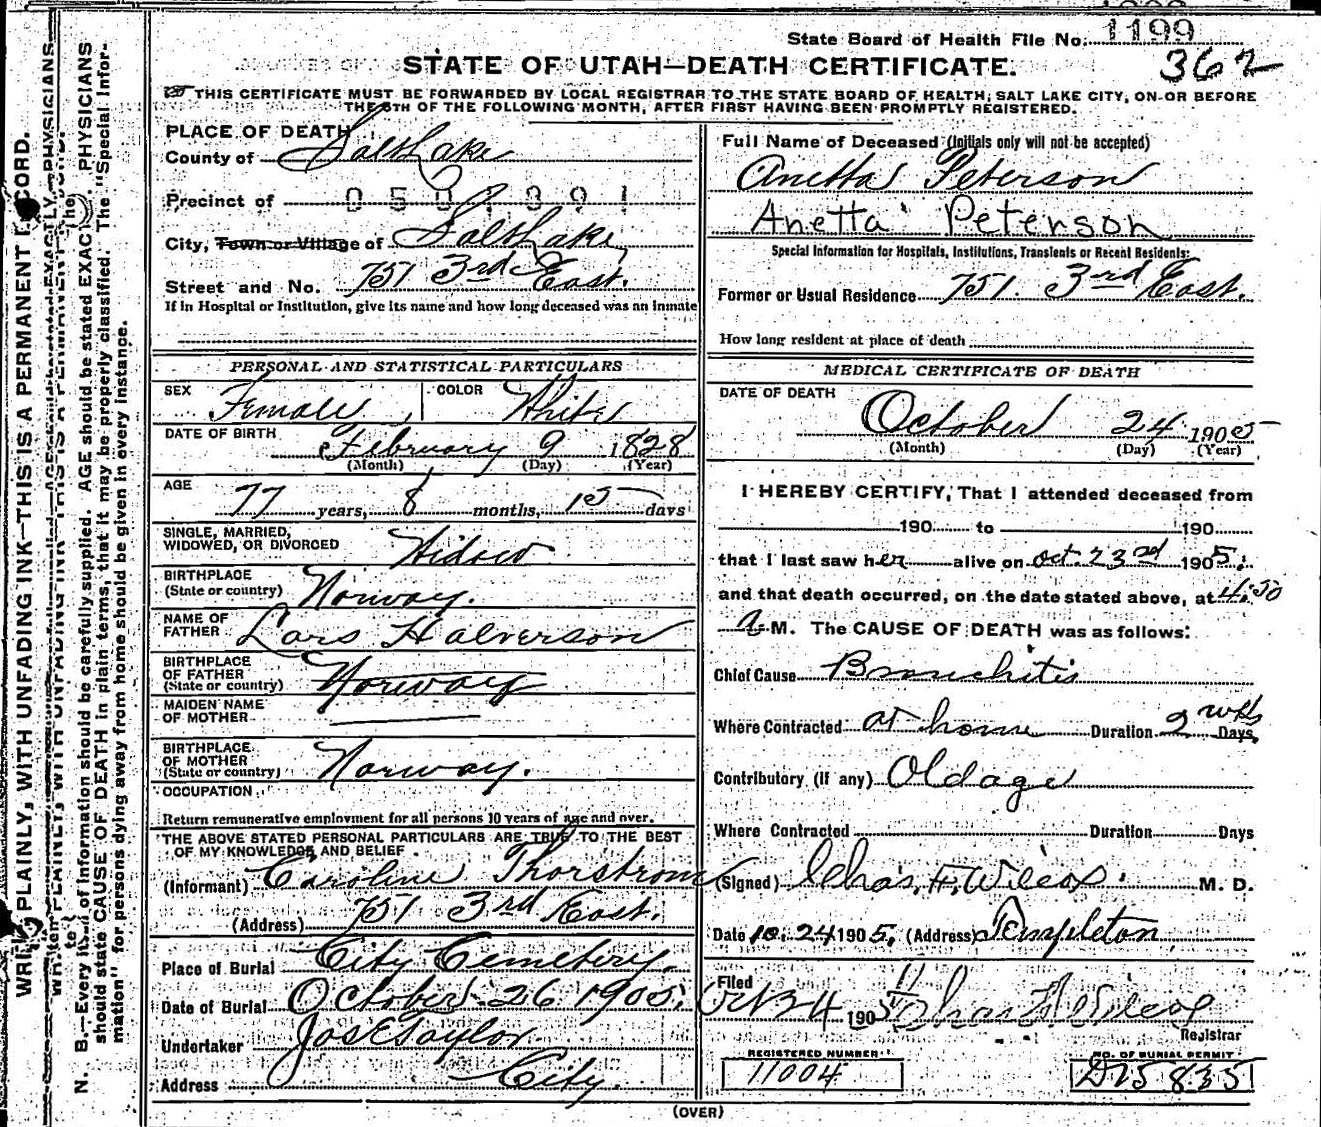 State Board of Health File No. 1199
362
STATE OF UTAH—DEATH CERTIFICATE.
THIS CERTIFICATE MUST BE FORWARDED BY LOCAL REGISTRAR TO THE STATE BOARD OF HEALTH, SALT LAKE CITY, ON OR BEFORE
THE 5TH OF THE FOLLOWING MONTH, AFTER FIRST HAVING BEEN PROMPTLY REGISTERED.
PLACE OF DEATH
County of Salt Lake
Precinct of 0501391
City, Town or Village of Salt Lake
Street and No. 751 3rd East.
If in Hospital or Institution, give its name and how long deceased was an inmate
PERSONAL AND STATISTICAL PARTICULARS
SEX Female COLOR White
DATE OF BIRTH February 9 1828
(Month) (Day) (Year)
AGE
77 years, 8 months, 15 days
SINGLE, MARRIED,
WIDOWED, OR DIVORCED Widow
BIRTHPLACE
(State or country) Norway.
NAME OF
FATHER Lars Halverson
BIRTHPLACE
OF FATHER
(State or country) Norway
MAIDEN NAME
OF MOTHER
BIRTHPLACE
OF MOTHER
(State or country) Norway.
OCCUPATION
Return remunerative employment for all persons 10 years of age and over.
THE ABOVE STATED PERSONAL PARTICULARS ARE TRUE TO THE BEST
OF MY KNOWLEDGE AND BELIEF
(Informant) Caroline Thorstrom
(Address) 751 3rd East.
Place of Burial City Cemetery.
Date of Burial October 26 1905.
Undertaker Jos E Taylor
Address City.
Full Name of Deceased (Initials only will not be accepted)
Anetta Peterson
Anetta Peterson
Special Information for Hospitals, Institutions, Transients or Recent Residents:
Former or Usual Residence 751. 3rd East.
How long resident at place of death
MEDICAL CERTIFICATE OF DEATH
DATE OF DEATH
October 24 1905
(Month) (Day) (Year)
I HEREBY CERTIFY, That I attended deceased from
190 to 190
that I last saw her alive on Oct. 23rd 1905;
and that death occurred, on the date stated above, at 4:50
A. M. The CAUSE OF DEATH was as follows:
Chief Cause Bronchitis
Where Contracted at home Duration 2 wks Days,
Contributory (if any) Old age
Where Contracted Duration Days
(Signed) Chas. F. Wilcox. M. D.
Date 10. 24 1905, (Address) Templeton
Filed
Oct 24 1905 Chas F Wilcox
Registrar
REGISTERED NUMBER
11004
NO. OF BURIAL PERMIT
D15835
(OVER)
WRITE PLAINLY, WITH UNFADING INK—THIS IS A PERMANENT RECORD.
N. B.—Every item of information should be carefully supplied. AGE should be stated EXACTLY. PHYSICIANS
should state CAUSE OF DEATH in plain terms, that it may be properly classified. The "Special Infor-
mation" for persons dying away from home should be given in every instance.